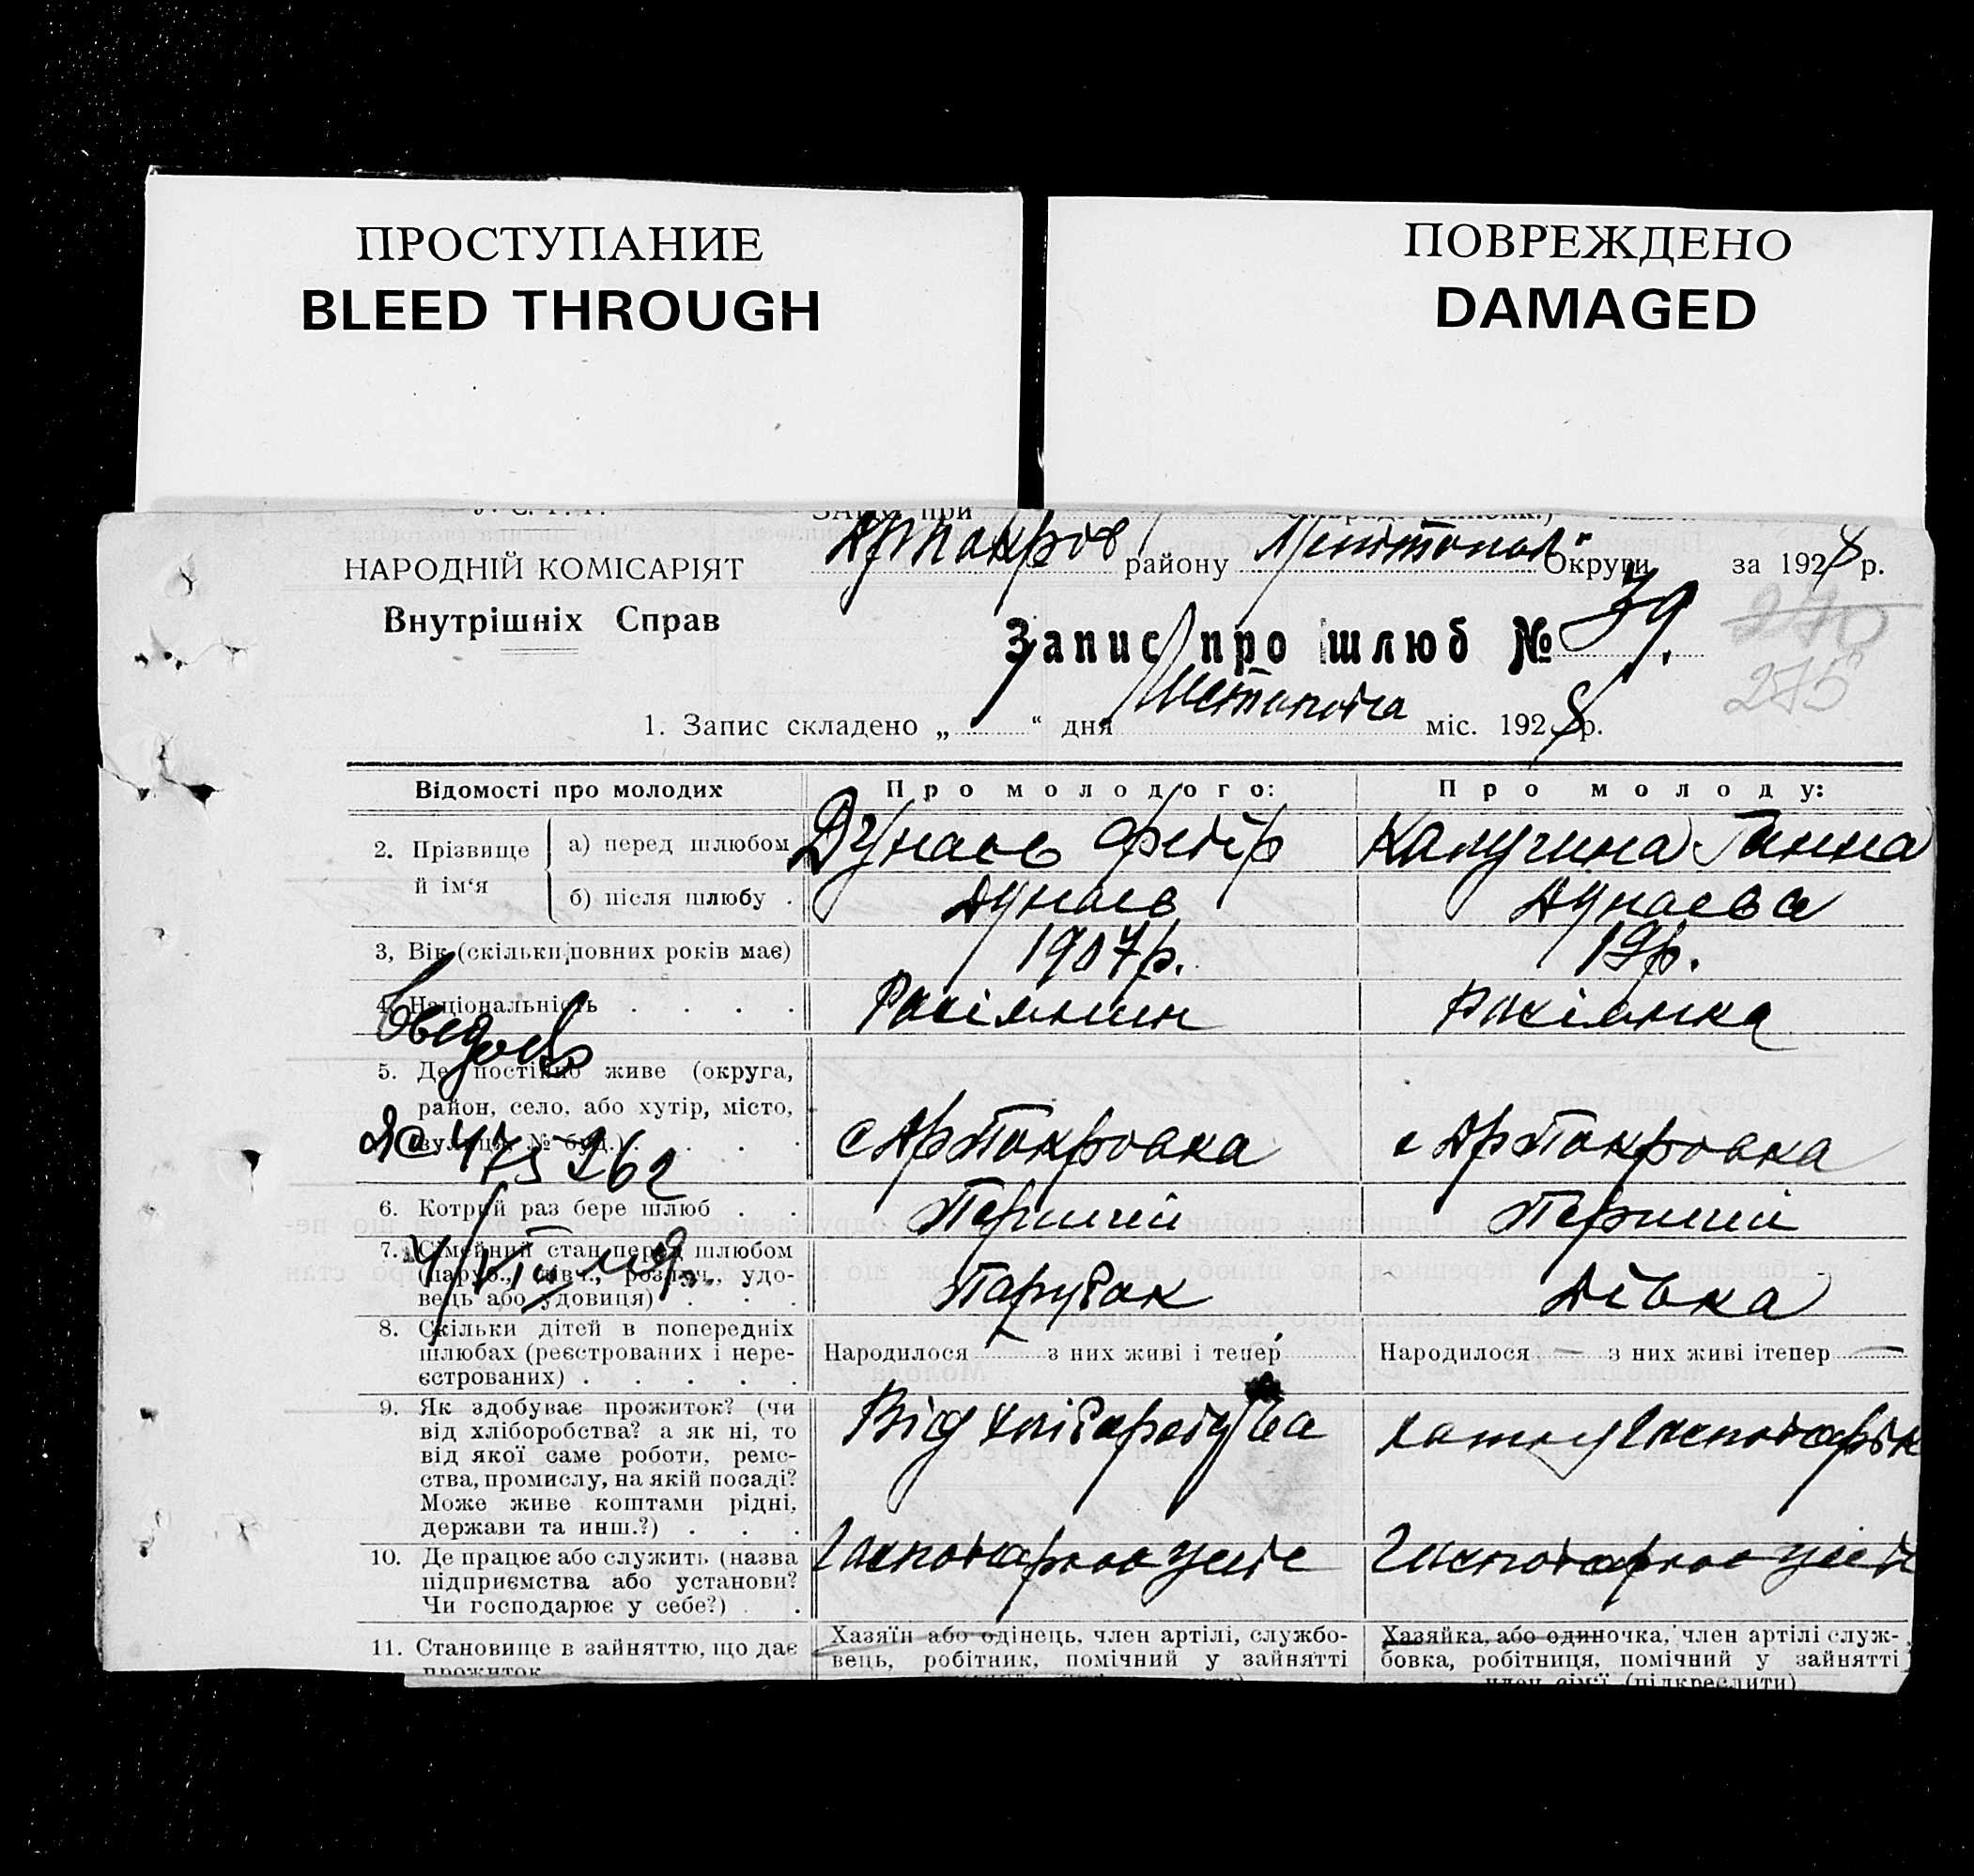 ПРОСТУПАНИЕ
BLEED THROUGH
ПОВРЕЖДЕНО
DAMAGED
НАРОДНІЙ КОМІСАРІЯТ
Внутрішніх Справ
району Округи за 1928 р.
270
275
Запис про шлюб № 39.
1. Запис складено „ “ дня міс. 1928 р.
Відомості про молодих
Про молодого:
Про молоду:
2. Прізвище й ім‘я
а) перед шлюбом
Дунаєв Федір
Ганна
б) після шлюбу .
Дунаєв
Дунаєва
3, Вік (скільки повних років має)
1907р.
19р.
4. Національність . . . .
Росіянин
Росіянка
5. Де постійно живе (округа,
район, село, або хутір, місто,
вулиця, № буд.) . . .
с Арпокровка
с Арпокровка
6. Котрий раз бере шлюб . .
Перший
Перший
7. Сімейний стан перед шлюбом
(паруб., дівч., розлуч., удо-
вець або удовиця) . . .
Парубок
Дівка
8. Скільки дітей в попередніх
шлюбах (реєстрованих і нере-
єстрованих) . . . . .
Народилося — з них живі і тепер
Народилося — з них живі ітепер —
9. Як здобуває прожиток? (чи
від хліборобства? а як ні, то
від якої саме роботи, реме-
ства, промислу, на якій посаді?
Може живе коштами рідні,
держави та инш.?) . . .
Від
10. Де працює або служить (назва
підприємства або установи?
Чи господарює у себе?) . .
11. Становище в зайняттю, що дає
прожиток
Хазяїн або одінець, член артілі, службо-
вець, робітник, помічний у зайнятті
Хазяйка, або одиночка, член артілі служ-
бовка, робітниця, помічний у зайнятті
член сім‘ї (підкреслити)